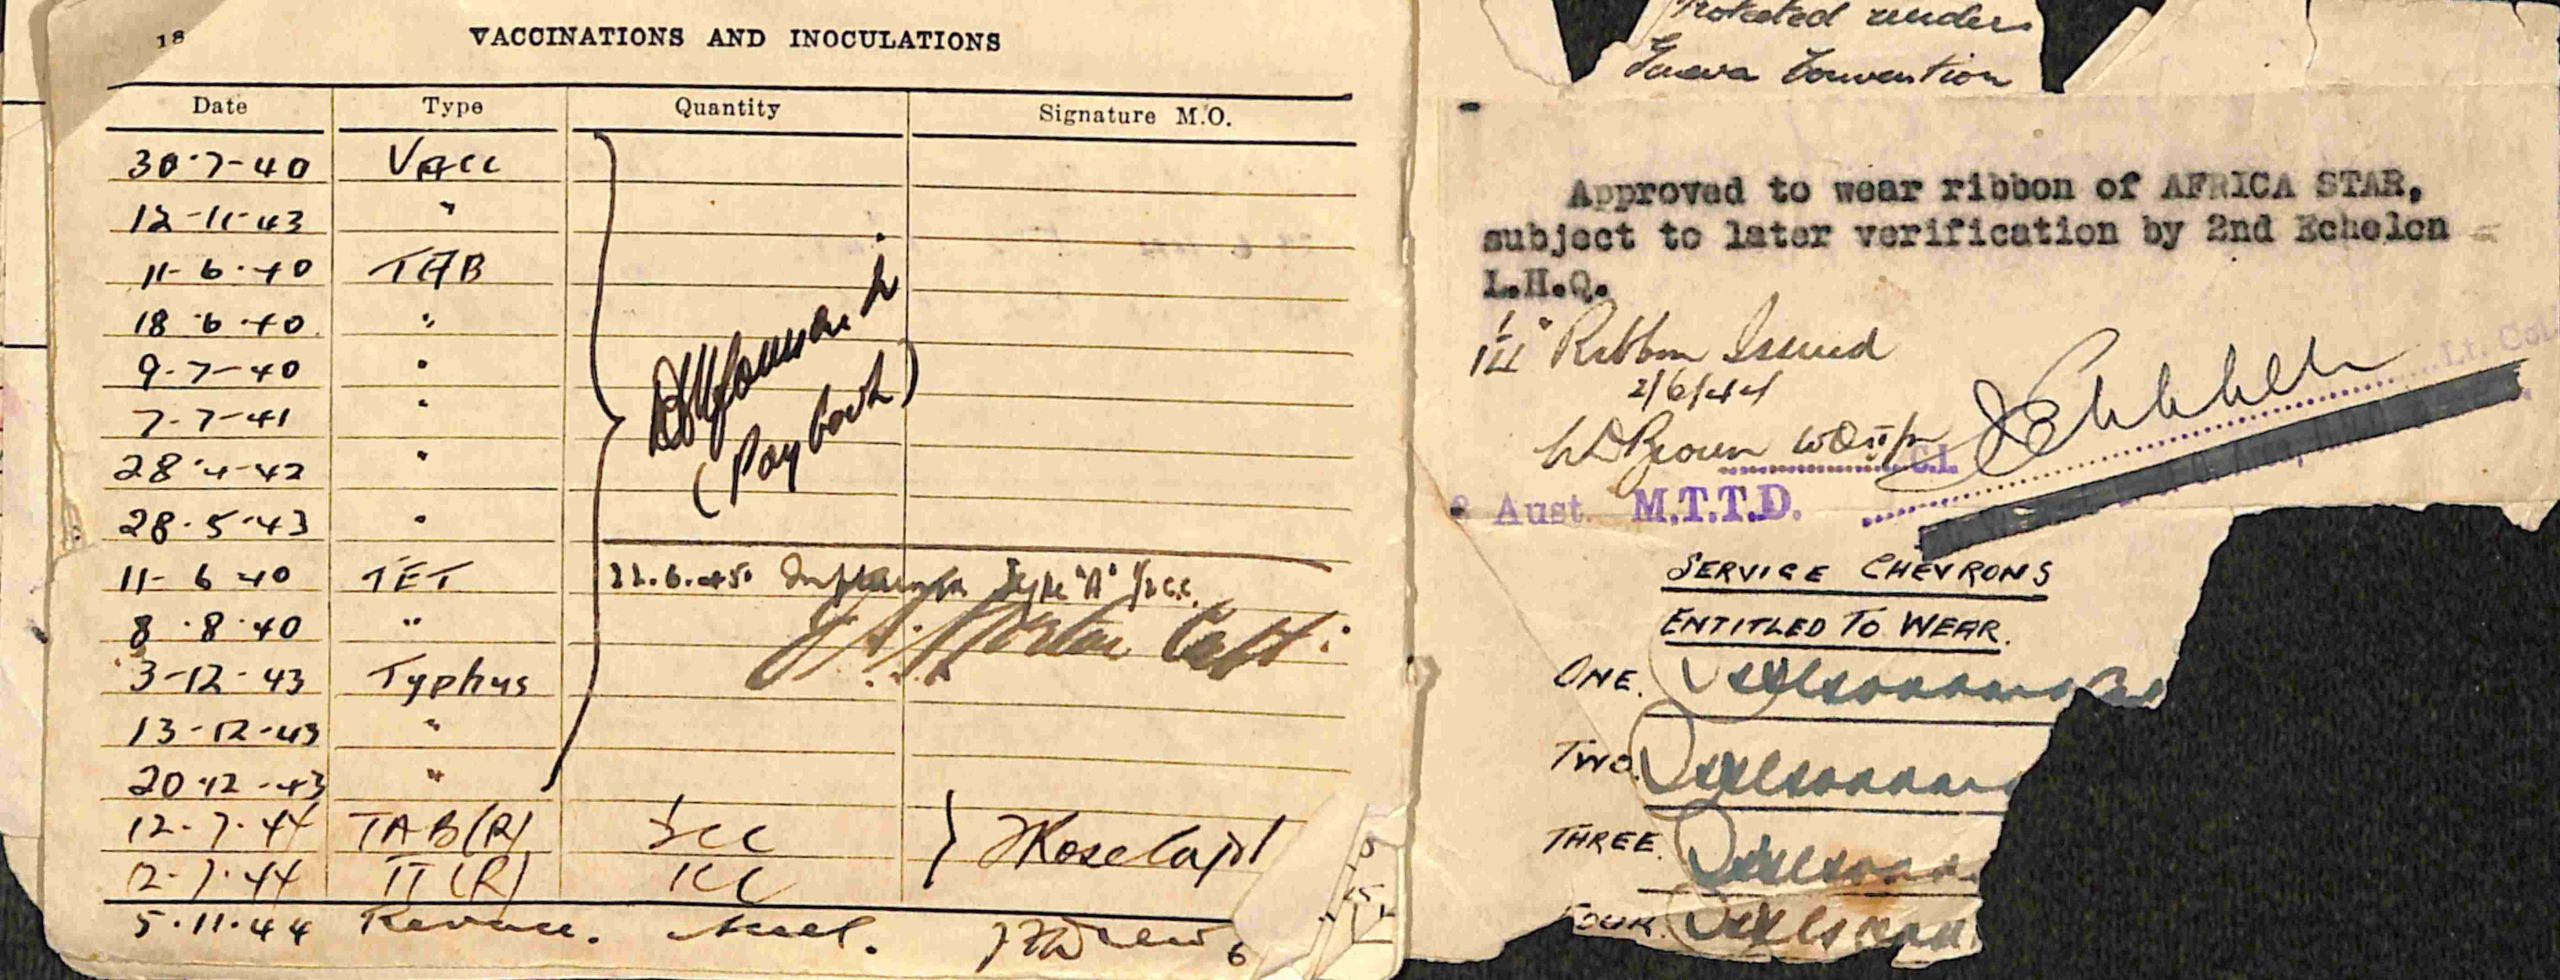 18
VACCINATIONS AND INOCULATIONS
Date Type Quantity Signature M.O.
30-7-40 Vacc
12-11-43 "
11-6-40 TAB
18-6-40 "
9-7-40 "
7-7-41 "
28-4-42 "
28-5-43 "
11-6-40 TET
8-8-40 "
3-12-43 Typhus
13-12-43 "
20-12-43 "
(Pay Book)
22.6.45 Influenza Type "A" 1/2 c.c.
Capt:
12-7-44 TAB(R) ½cc
12-7-44 TT(R) 1cc Rose Capt
5.11.44 Revacc.
Protected under
Geneva Convention
Approved to wear ribbon of AFRICA STAR,
subject to later verification by 2nd Echelon
L.H.Q.
Ribbon Issued
2/6/44
Brown WOII
Lt. Col.
C.I.
Aust. M.T.T.D.
SERVICE CHEVRONS
ENTITLED TO WEAR.
ONE.
TWO.
THREE.
FOUR.